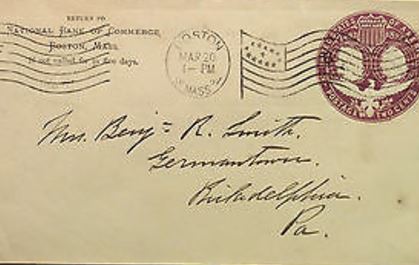 RETURN TO
NATIONAL BANK OF COMMERCE,
BOSTON, MASS.
If not called for in five days.
BOSTON
MAR 20
1-PM
MASS.
UNITED STATES OF AMERICA
POSTAGE TWO CENTS
Mrs. Benj= R. Smith.
Germantown.
Philadelphia.
Pa.